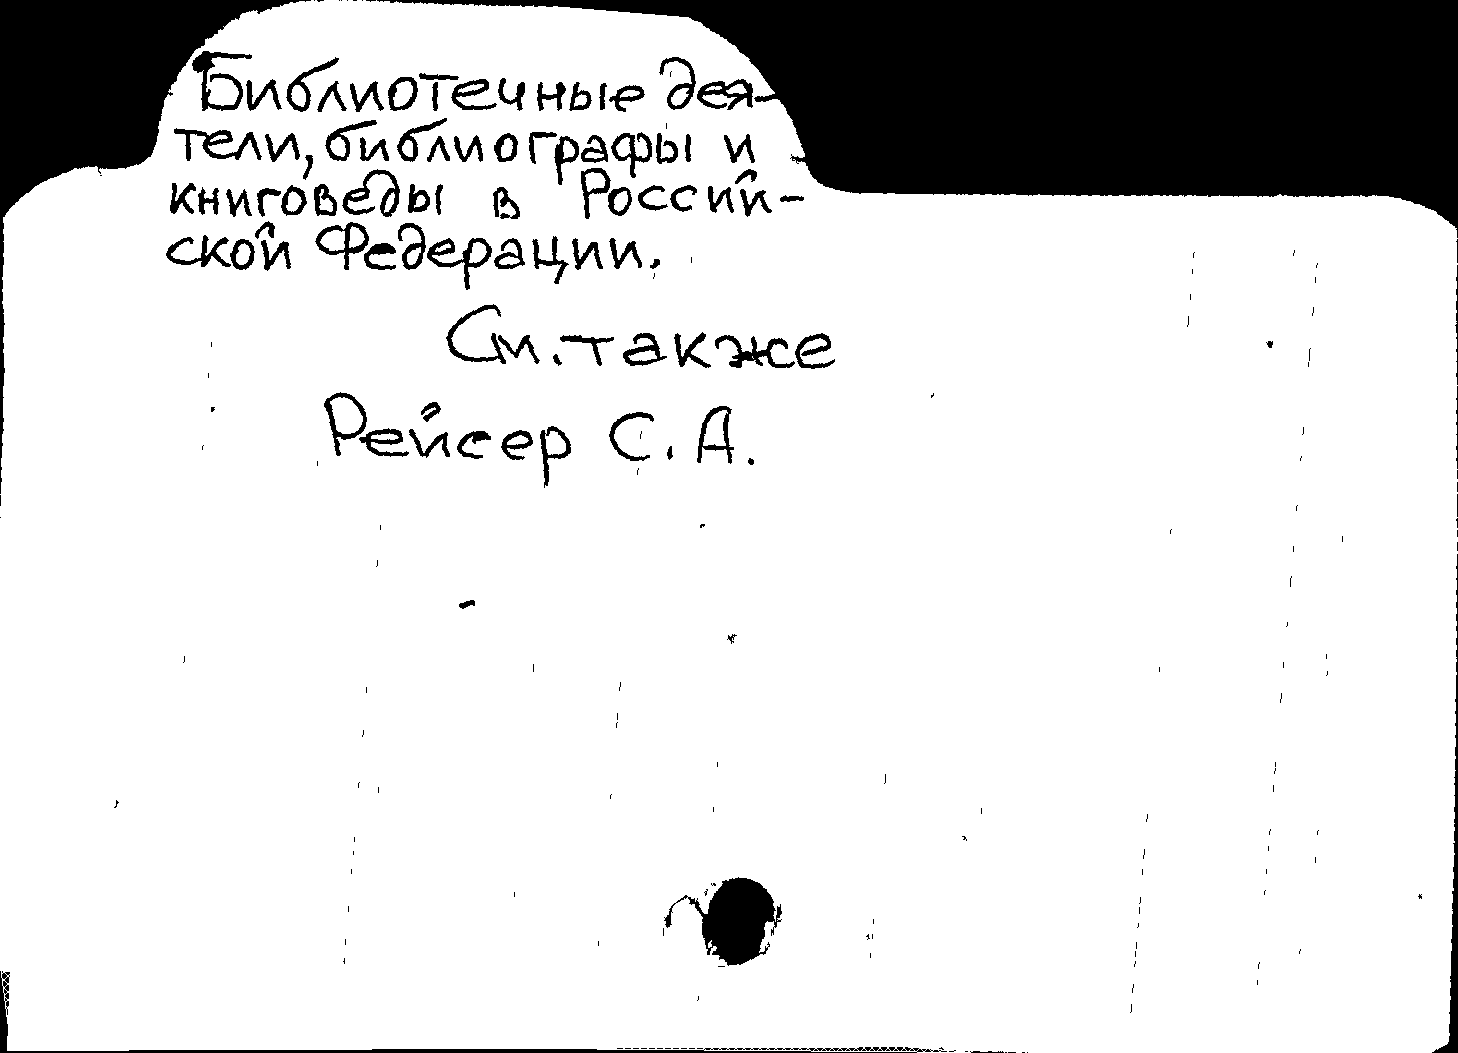 Библиотечные дея-
тели, библиографы и
книговеды в Россий-
ской Федерации.
См. также
Рейсер С. А.